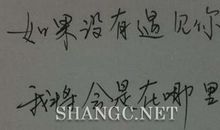 如果没有遇见你
我将会是在哪里
SHANGC.NET